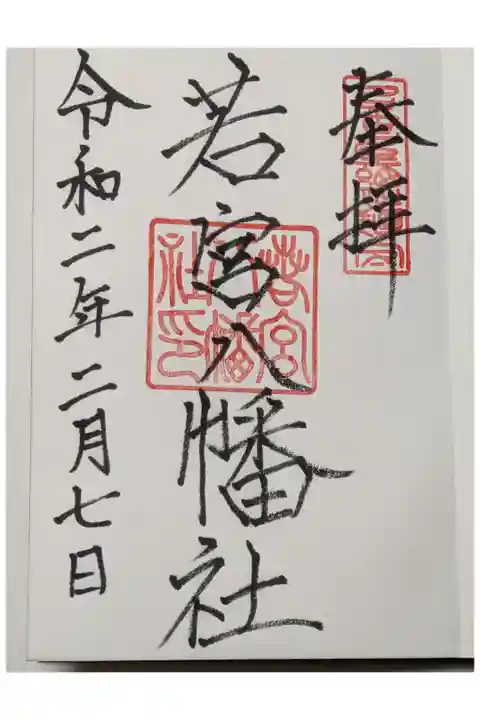 奉拝
若宮八幡社
若宮
八幡
社印
令和二年二月七日